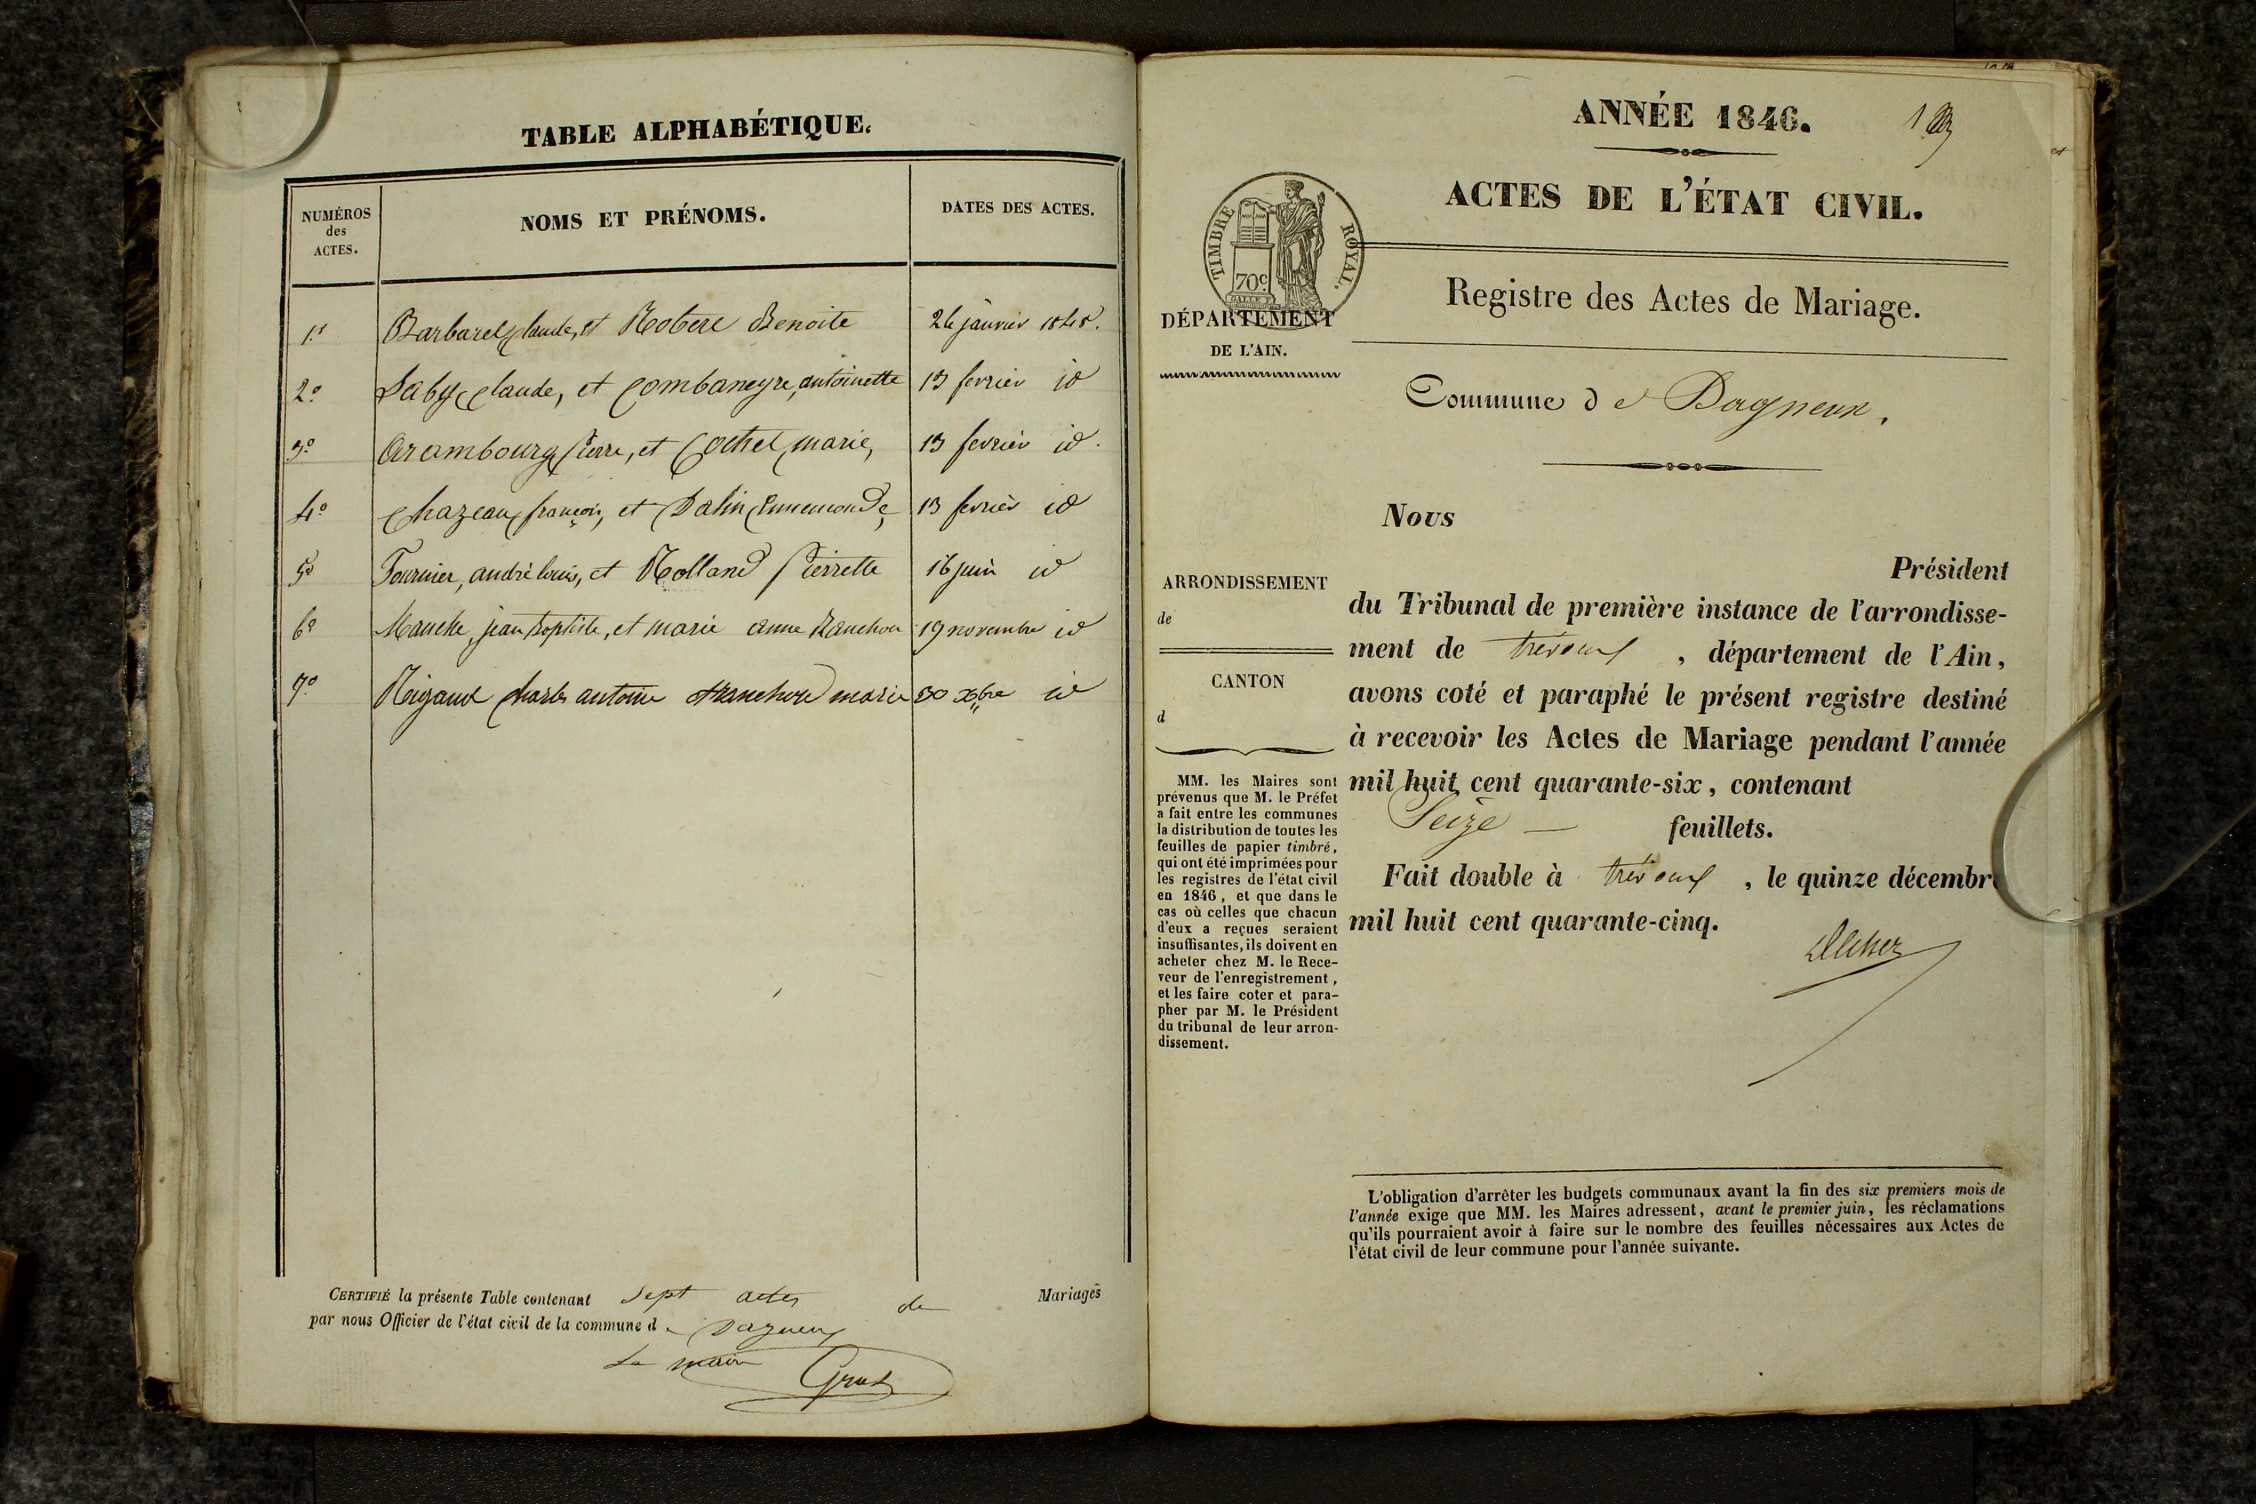 TABLE ALPHABÉTIQUE.
NUMÉROS
des
ACTES.
NOMS ET PRÉNOMS.
DATES DES ACTES.
1º Barbarel Claude, et Robert Benoite
2º Saby Claude, et Combaneyre, antoinette 13 fevrier id
3º Arambourg Pierre, et Cochet marie, 13 fevrier id.
4º Chazeau françois, et Ennemonde, 13 fevrier id
5º Fournier, andré louis, et Rolland Pierrette 16 juin id
6º jean Baptiste, et marie anne 19 novembre id
7º Charles antoine marie 30 xbre id
CERTIFIÉ la présente Table contenant sept actes de Mariages
par nous Officier de l'état civil de la commune de Dagneux
Le maire
ANNÉE 1846.
ACTES DE L'ÉTAT CIVIL.
TIMBRE ROYAL.
70 c
Registre des Actes de Mariage.
DÉPARTEMENT
DE L'AIN.
Commune de Dagneux.
ARRONDISSEMENT
de
CANTON
d
MM. les Maires sont
prévenus que M. le Préfet
a fait entre les communes
la distribution de toutes les
feuilles de papier timbré,
qui ont été imprimées pour
les registres de l'état civil
en 1846, et que dans le
cas où celles que chacun
d'eux a reçues seraient
insuffisantes, ils doivent en
acheter chez M. le Rece-
veur de l'enregistrement,
et les faire coter et para-
pher par M. le Président
du tribunal de leur arron-
dissement.
Nous
Président
du Tribunal de première instance de l'arrondisse-
ment de trévoux, département de l'Ain,
avons coté et paraphé le présent registre destiné
à recevoir les Actes de Mariage pendant l'année
mil huit cent quarante-six, contenant
Seize — feuillets.
Fait double à trévoux, le quinze décembre
mil huit cent quarante-cinq.
L'obligation d'arrêter les budgets communaux avant la fin des six premiers mois de
l'année exige que MM. les Maires adressent, avant le premier juin, les réclamations
qu'ils pourraient avoir à faire sur le nombre des feuilles nécessaires aux Actes de
l'état civil de leur commune pour l'année suivante.